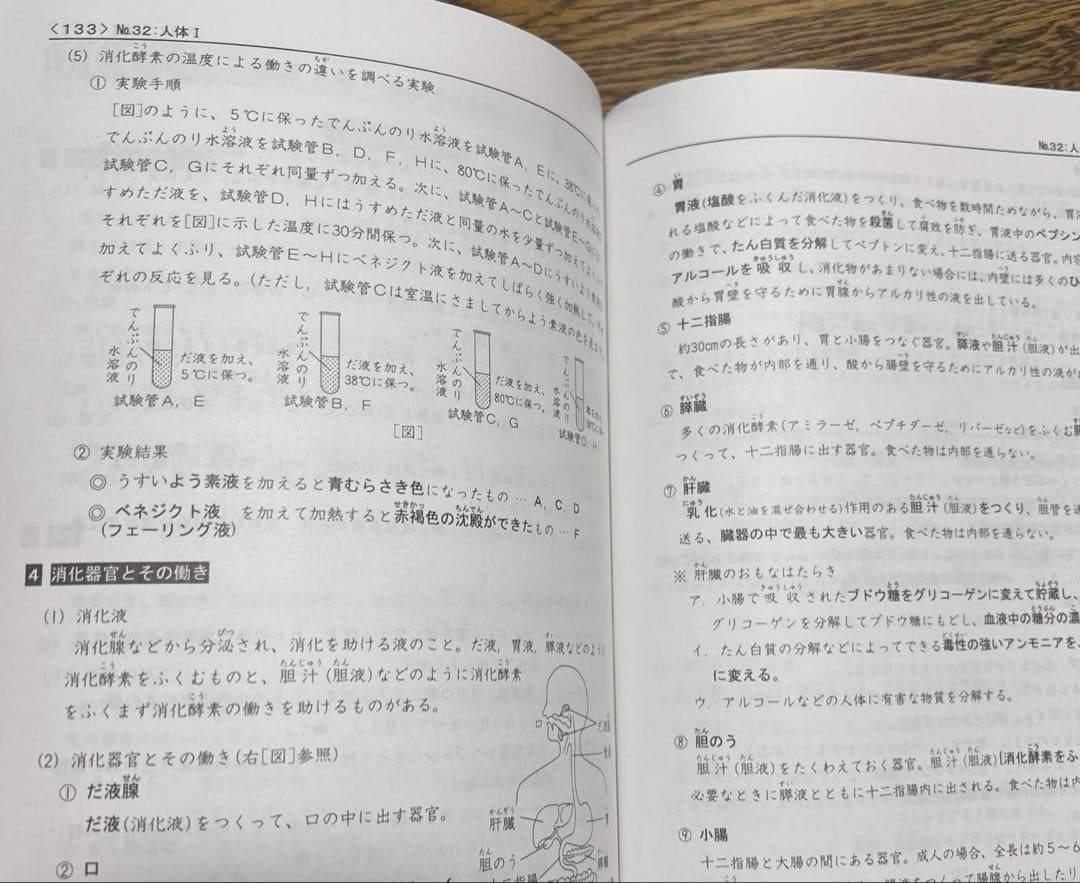 〈133〉 №32:人体Ⅰ
(5) 消化酵素の温度による働きの違いを調べる実験
① 実験手順
[図]のように、5℃に保ったでんぷんのり水溶液を試験管A, Eに、38℃に
でんぷんのり水溶液を試験管B, D, F, Hに、80℃に保ったでんぷんのり水溶液
試験管C, Gにそれぞれ同量ずつ加える。次に、試験管A〜Cと試験管E〜Gに
すめただ液を、試験管D, Hにはうすめただ液と同量の水を少量ずつ加えてよく
それぞれを[図]に示した温度に30分間保つ。次に、試験管A〜Dにうすいよう素液
加えてよくふり、試験管E〜Hにベネジクト液を加えてしばらく強く加熱して、
ぞれの反応を見る。(ただし、試験管Cは室温にさましてからよう素液の色を見
でんぷんのり水溶液
だ液を加え、5℃に保つ。
試験管A, E
でんぷんのり水溶液
だ液を加え、38℃に保つ。
試験管B, F
でんぷんのり水溶液
だ液を加え、80℃に保つ。
試験管C, G
でんぷんのり水溶液
試験管D, H
[図]
② 実験結果
◎ うすいよう素液を加えると青むらさき色になったもの … A, C, D
◎ ベネジクト液 を加えて加熱すると赤褐色の沈殿ができたもの … F
(フェーリング液)
4 消化器官とその働き
(1) 消化液
消化腺などから分泌され、消化を助ける液のこと。だ液, 胃液, 膵液などのように
消化酵素をふくむものと、胆汁(胆液)などのように消化酵素
をふくまず消化酵素の働きを助けるものがある。
(2) 消化器官とその働き(右[図]参照)
① だ液腺
だ液(消化液)をつくって、口の中に出す器官。
② 口
口
肝臓
胆のう
十二指腸
№32:人
④ 胃
胃液(塩酸をふくんだ消化液)をつくり、食べ物を数時間ためながら、胃液
れる塩酸などによって食べた物を殺菌して腐敗を防ぎ、胃液中のペプシン
の働きで、たん白質を分解してペプトンに変え、十二指腸に送る器官。内容
アルコールを吸収し、消化物があまりない場合には、内壁には多くのひ
酸から胃壁を守るために胃腺からアルカリ性の液を出している。
⑤ 十二指腸
約30cmの長さがあり、胃と小腸をつなぐ器官。膵液や胆汁(胆液)が出
で、食べた物が内部を通り、酸から腸壁を守るためにアルカリ性の液が出
⑥ 膵臓
多くの消化酵素(アミラーゼ, ペプチダーゼ, リパーゼなど)をふくむ膵
つくって、十二指腸に出す器官。食べた物は内部を通らない。
⑦ 肝臓
乳化(水と油を混ぜ合わせる)作用のある胆汁(胆液)をつくり、胆管を通
送る、臓器の中で最も大きい器官。食べた物は内部を通らない。
※ 肝臓のおもなはたらき
ア. 小腸で吸収されたブドウ糖をグリコーゲンに変えて貯蔵し、
グリコーゲンを分解してブドウ糖にもどし、血液中の糖分の濃
イ. たん白質の分解などによってできる毒性の強いアンモニアを、
に変える。
ウ. アルコールなどの人体に有害な物質を分解する。
⑧ 胆のう
胆汁(胆液)をたくわえておく器官。胆汁(胆液)[消化酵素をふ
必要なときに膵液とともに十二指腸内に出される。食べた物は内
⑨ 小腸
十二指腸と大腸の間にある器官。成人の場合、全長は約5〜6